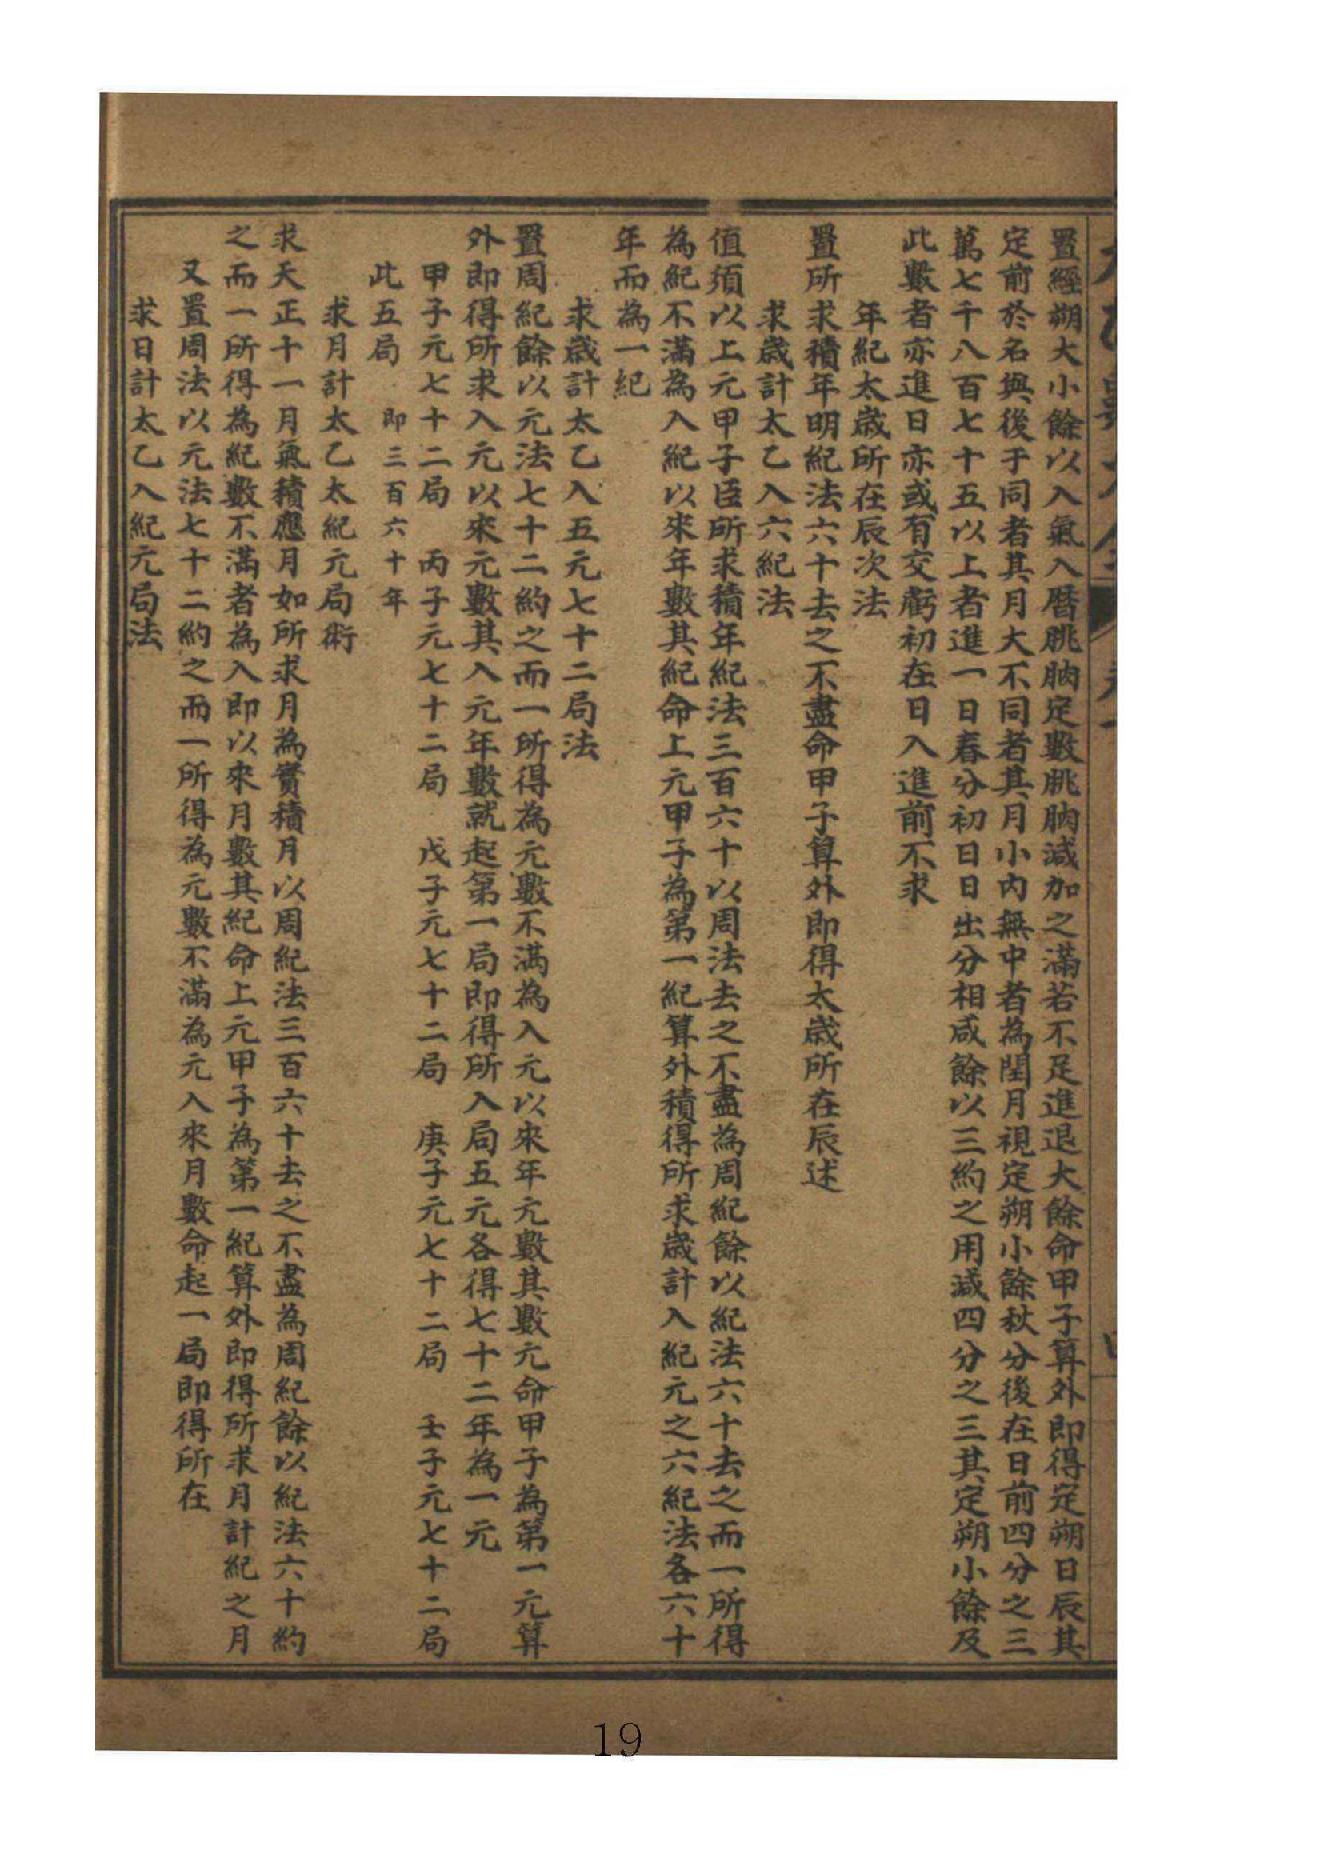 置經朔大小餘以入氣入曆朓朒定數朓朒減加之滿若不足進退大餘命甲子算外即得定朔日辰其
定前於名與後于同者其月大不同者其月小內無中者為閏月視定朔小餘秋分後在日前四分之三
萬七千八百七十五以上者進一日春分初日日出分相咸餘以三約之用減四分之三其定朔小餘及
此數者亦進日亦或有交虧初在日入進前不求
年紀太歲所在辰次法
置所求積年明紀法六十去之不盡命甲子算外即得太歲所在辰述
求歲計太乙入六紀法
值須以上元甲子臣所求積年紀法三百六十以周法去之不盡為周紀餘以紀法六十去之而一所得
為紀不滿為入紀以來年數其紀命上元甲子為第一紀算外積得所求歲計入紀元之六紀法各六十
年而為一紀
求歲計太乙入五元七十二局法
置周紀餘以元法七十二約之而一所得為元數不滿為入元以來年元數其數元命甲子為第一元算
外即得所求入元以來元數其入元年數就起第一局即得所入局五元各得七十二年為一元
甲子元七十二局 丙子元七十二局 戊子元七十二局 庚子元七十二局 壬子元七十二局
此五局 即三百六十年
求月計太乙太紀元局術
求天正十一月氣積應月如所求月為實積月以周紀法三百六十去之不盡為周紀餘以紀法六十約
之而一所得為紀數不滿者為入即以來月數其紀命上元甲子為第一紀算外即得所求月計紀之月
又置周法以元法七十二約之而一所得為元數不滿為元入來月數命起一局即得所在
求日計太乙入紀元局法
19